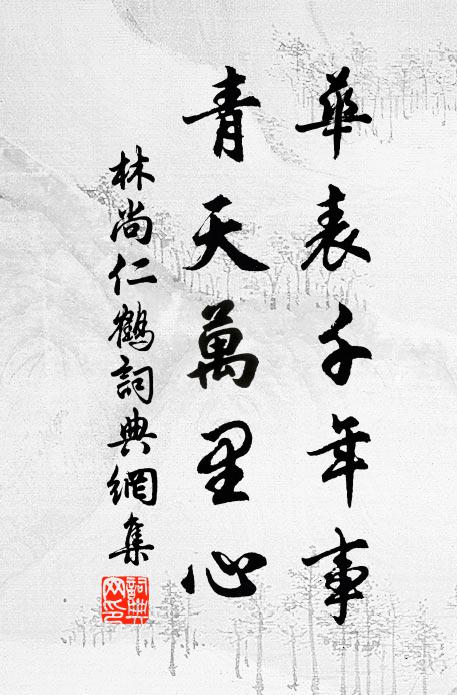 華表千年事
青天萬里心
林尚仁鶴詞典網集